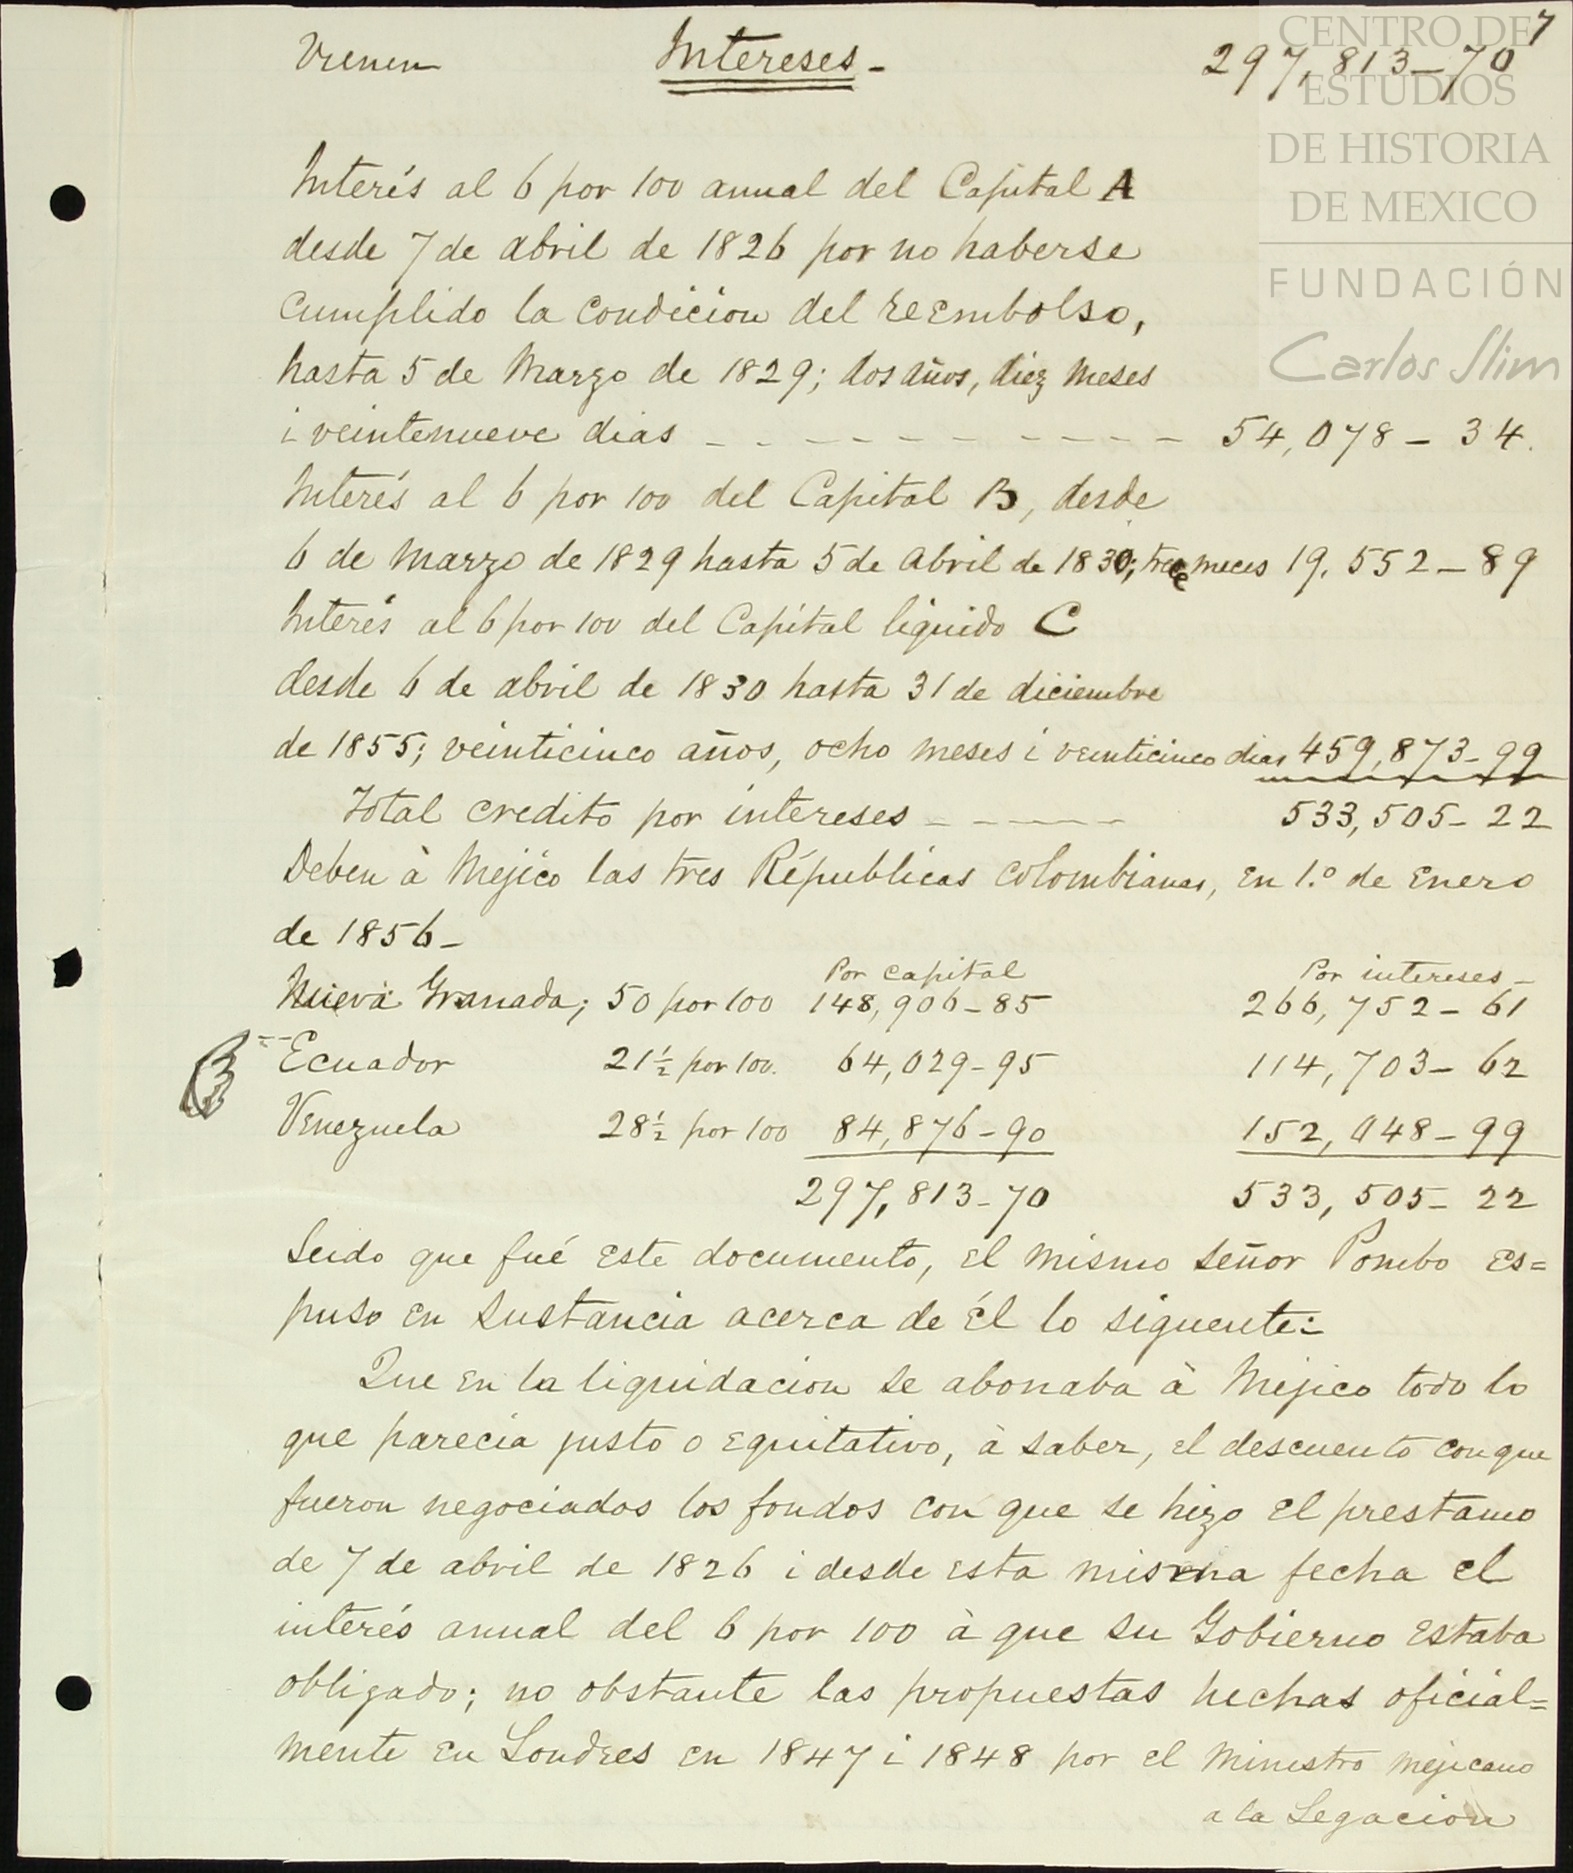 7
Vienen Intereses- 297,813-70
CENTRO DE
ESTUDIOS
DE HISTORIA
DE MEXICO
FUNDACIÓN
Carlos Slim
Interés al 6 por 100 anual del Capital A
desde 7 de abril de 1826 por no haberse
cumplido la condicion del reembolso,
hasta 5 de Marzo de 1829; dos años, diez meses
i veintenueve dias - - - - - - - - - - 54,078-34.
Interés al 6 por 100 del Capital B, desde
6 de Marzo de 1829 hasta 5 de Abril de 1830; trece meces 19,552-89
Interés al 6 por 100 del Capital liquido C
desde 6 de abril de 1830 hasta 31 de diciembre
de 1855; veinticinco años, ocho meses i veinticinco dias 459,873-99
Total credito por intereses - - - - - 533,505-22
Deben à Mejico las tres Républicas colombianas, en 1.º de Enero
de 1856-
Por capital Por intereses-
Nueva Granada; 50 por 100 148,906-85 266,752-61
Ecuador 21 1/2 por 100. 64,029-95 114,703-62
Venezuela 28 1/2 por 100 84,876-90 152,048-99
297,813-70 533,505-22
Leido que fué este documento, el mismo Señor Pombo es=
puso en sustancia acerca de él lo siguente:
Que en la liquidacion se abonaba à Mejico todo lo
que parecia justo o equitativo, à saber, el descuento con que
fueron negociados los fondos con que se hizo el prestamo
de 7 de abril de 1826 i desde esta misma fecha el
interés anual del 6 por 100 à que su Gobierno estaba
obligado; no obstante las propuestas hechas oficial=
mente en Londres en 1847 i 1848 por el Ministro Mejicano
a la Legacion